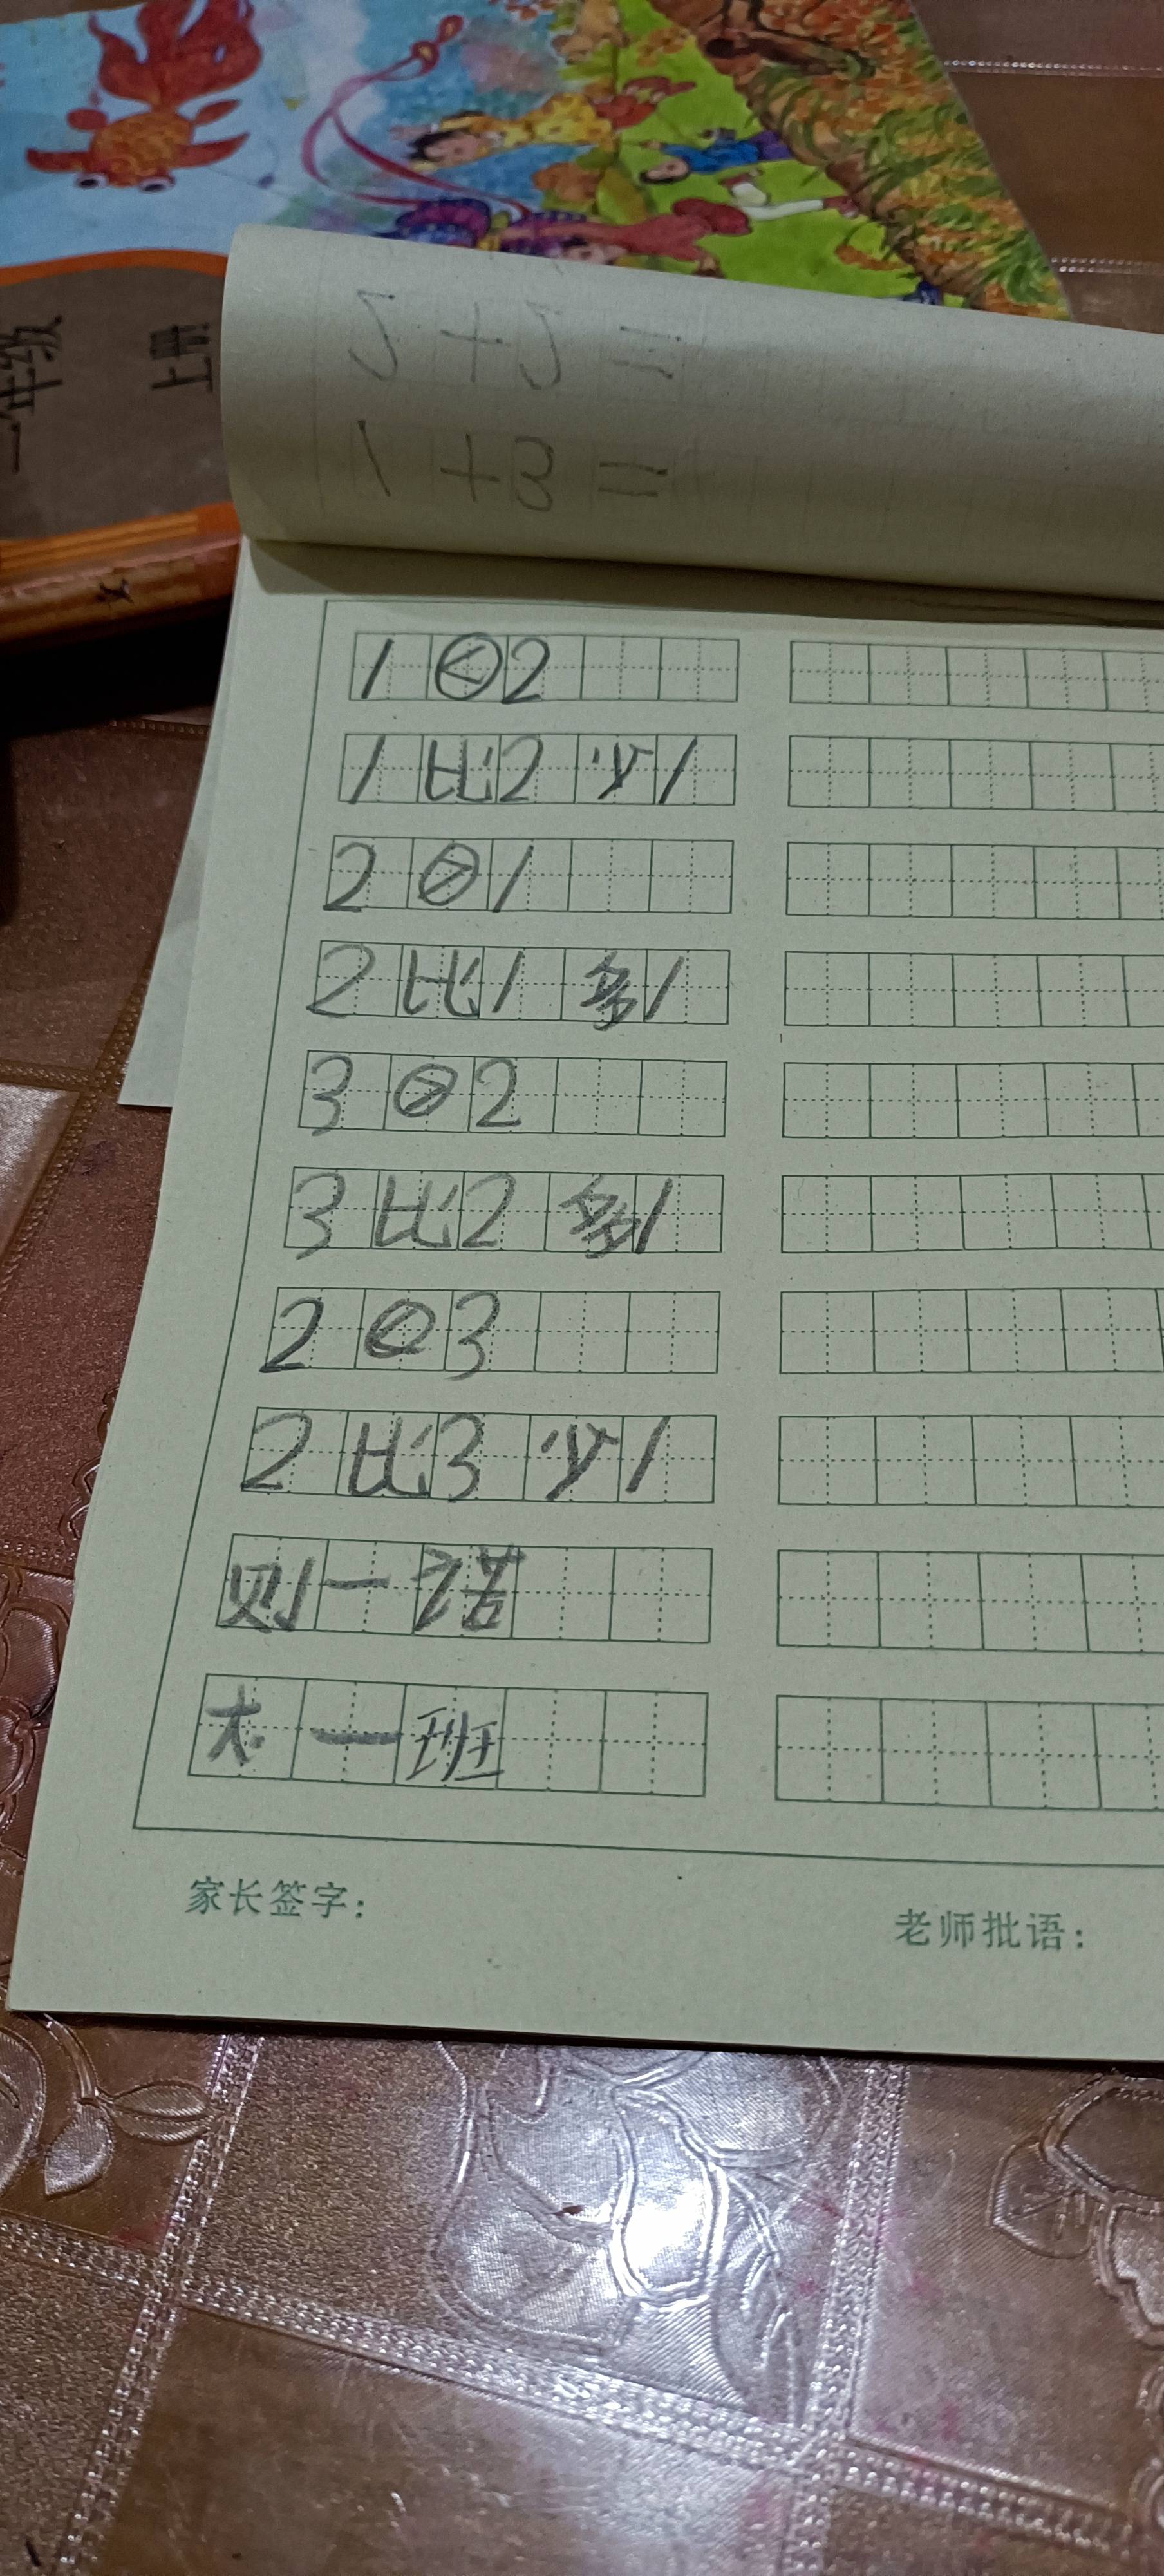 一年级
上册
5+5=
1+3=
1<2
1比2少1
2>1
2比1多1
3>2
3比2多1
2<3
2比3少1
则一诺
大一班
家长签字:
老师批语: